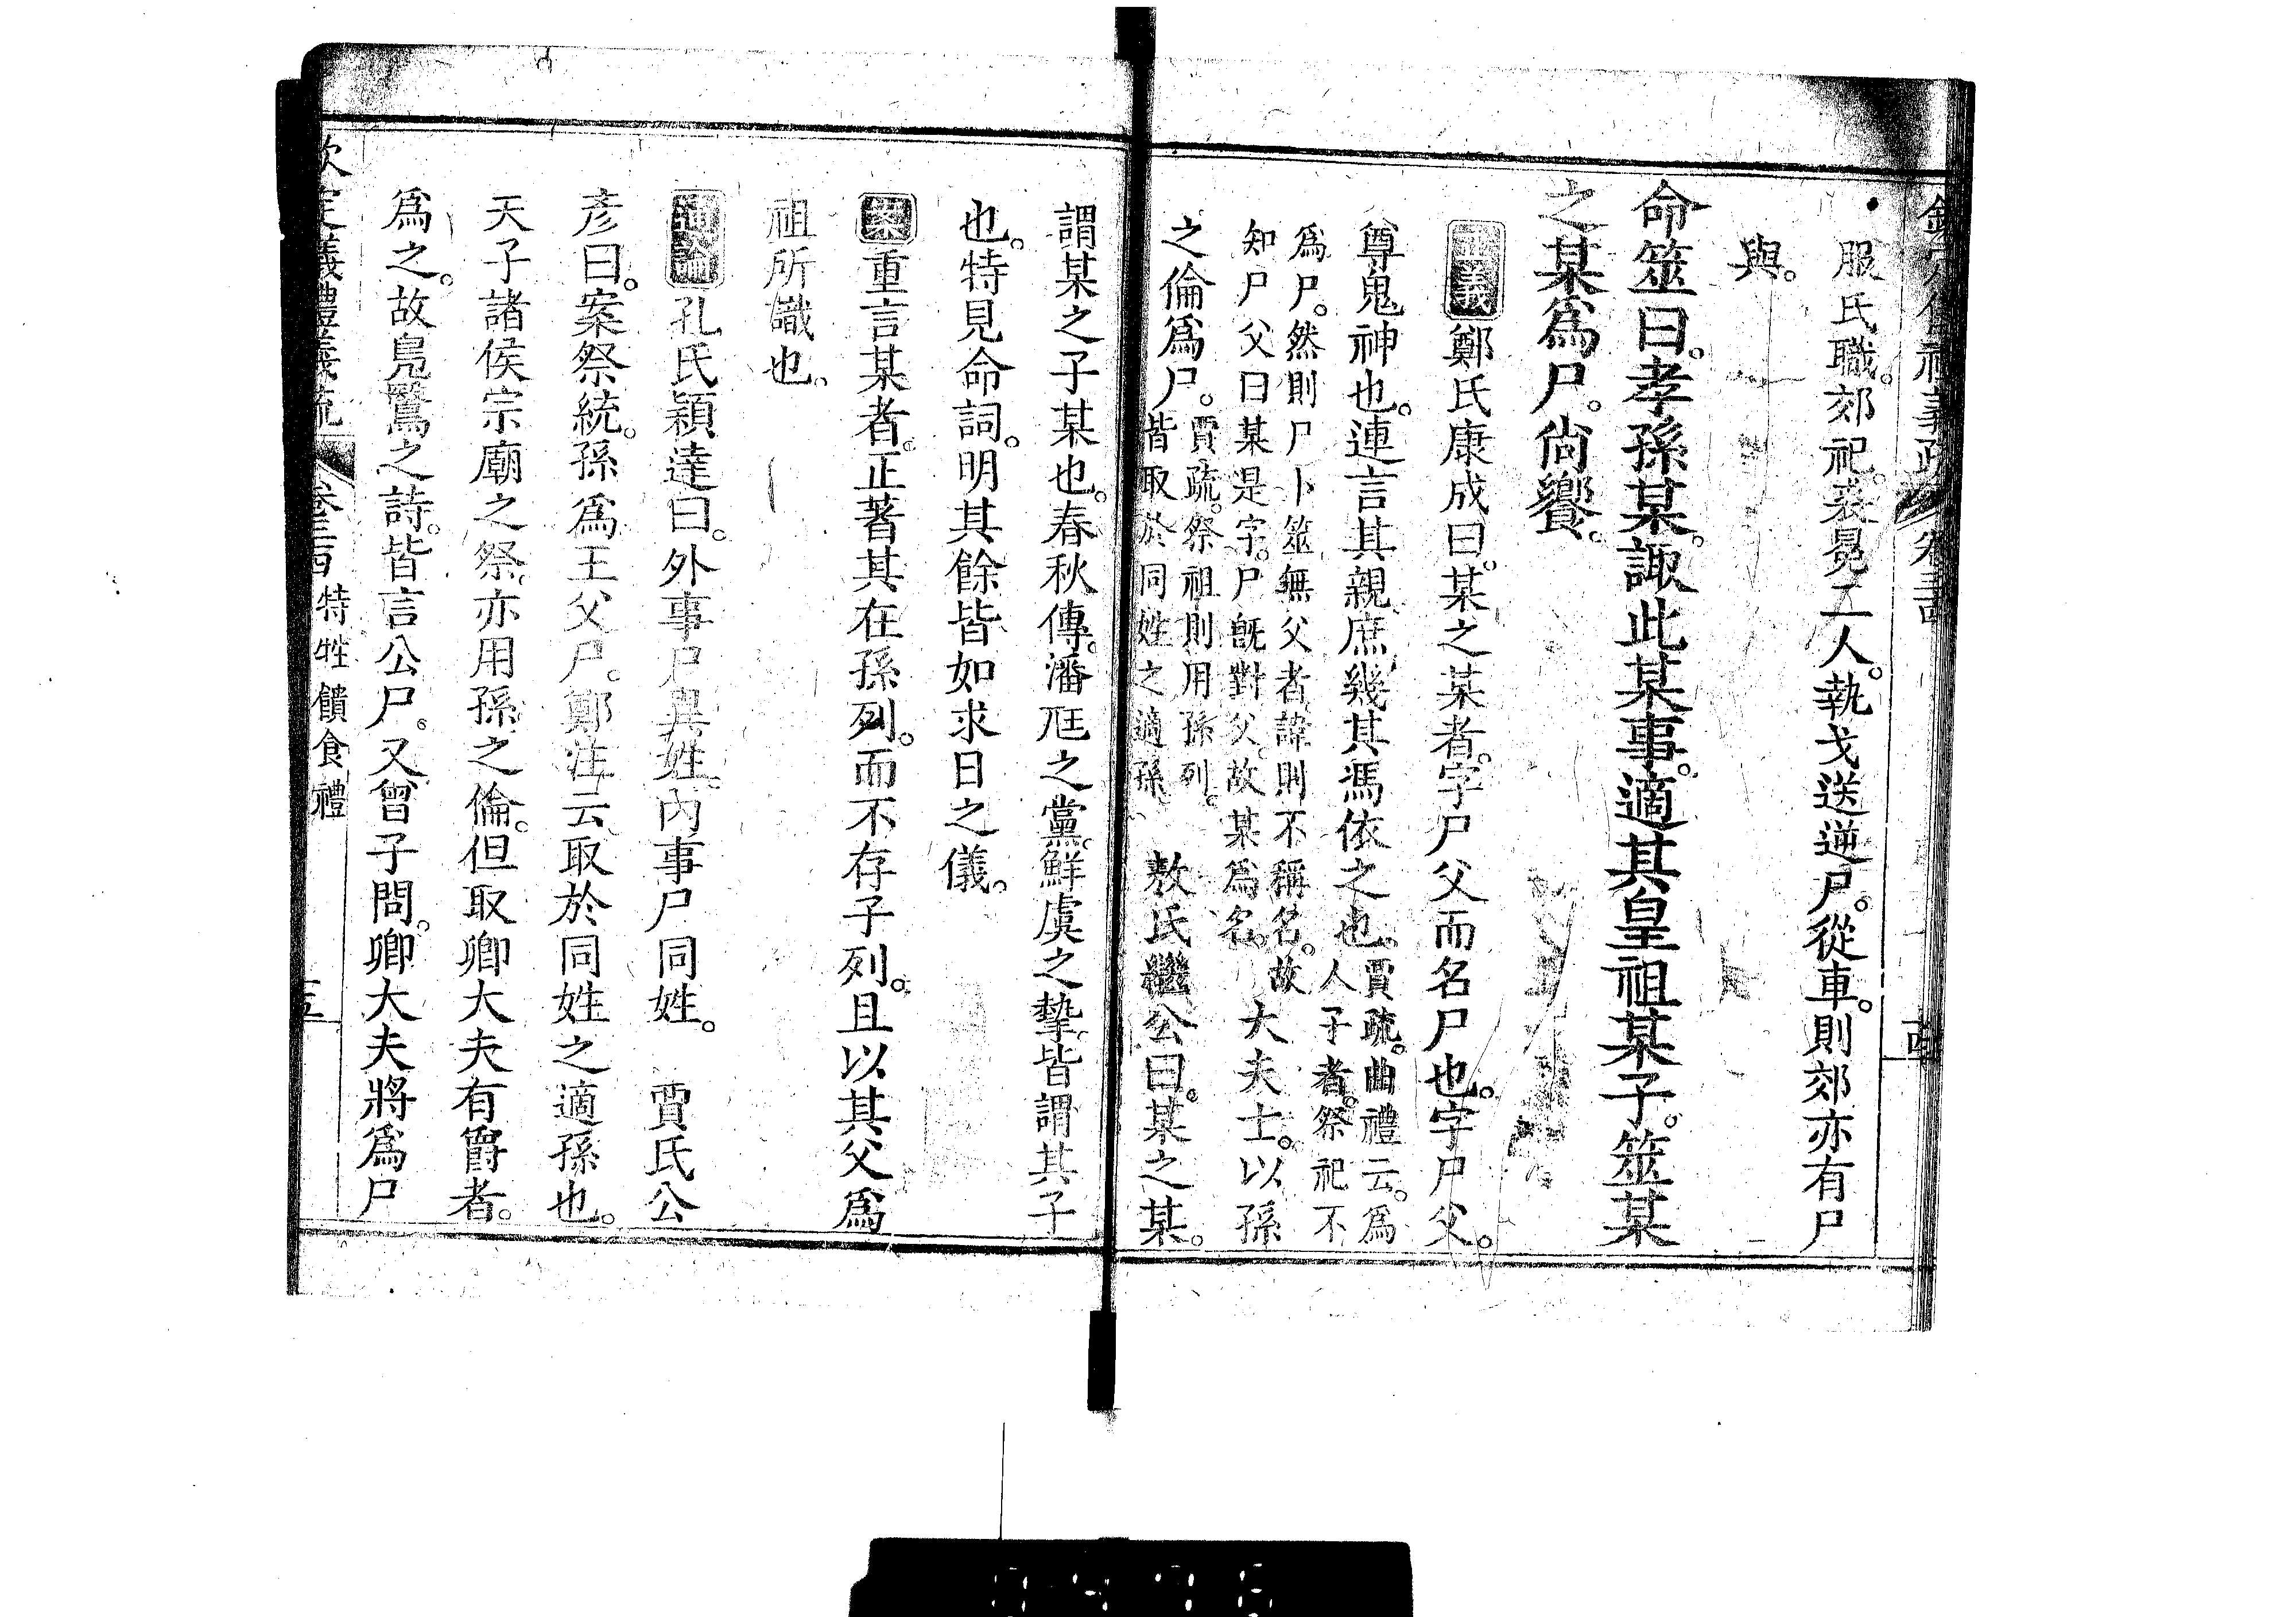 服氏職。郊祀。裘冕二人。執戈送逆尸。從車。則郊亦有尸
與。
命筮曰。孝孫某。諏此某事。適其皇祖某子。筮某
之某爲尸。尙饗。
正義鄭氏康成曰。某之某者。字尸父而名尸也。字尸父。
尊鬼神也。連言其親。庶幾其馮依之也。賈疏。曲禮云。爲
人子者。祭祀不
爲尸。然則尸卜筮無父者諱則不稱名。故
知尸父曰某是字。尸旣對父。故某爲名。大夫士。以孫
之倫爲尸。賈疏。祭祖則用孫列。
皆取於同姓之適孫 敖氏繼公曰。某之某。
謂某之子某也。春秋傳。潘尫之黨。鮮虞之摯。皆謂其子
也。特見命詞。明其餘皆如求日之儀。
案重言某者。正著其在孫列。而不存子列。且以其父爲
祖所識也。
通論孔氏穎達曰。外事尸異姓。內事尸同姓。 賈氏公
彥曰。案祭統。孫爲王父尸。鄭注云取於同姓之適孫也。
天子諸侯宗廟之祭。亦用孫之倫。但取卿大夫有爵者。
爲之。故鳧鷖之詩。皆言公尸。又曾子問。卿大夫將爲尸
欽定儀禮義疏 特牲饋食禮